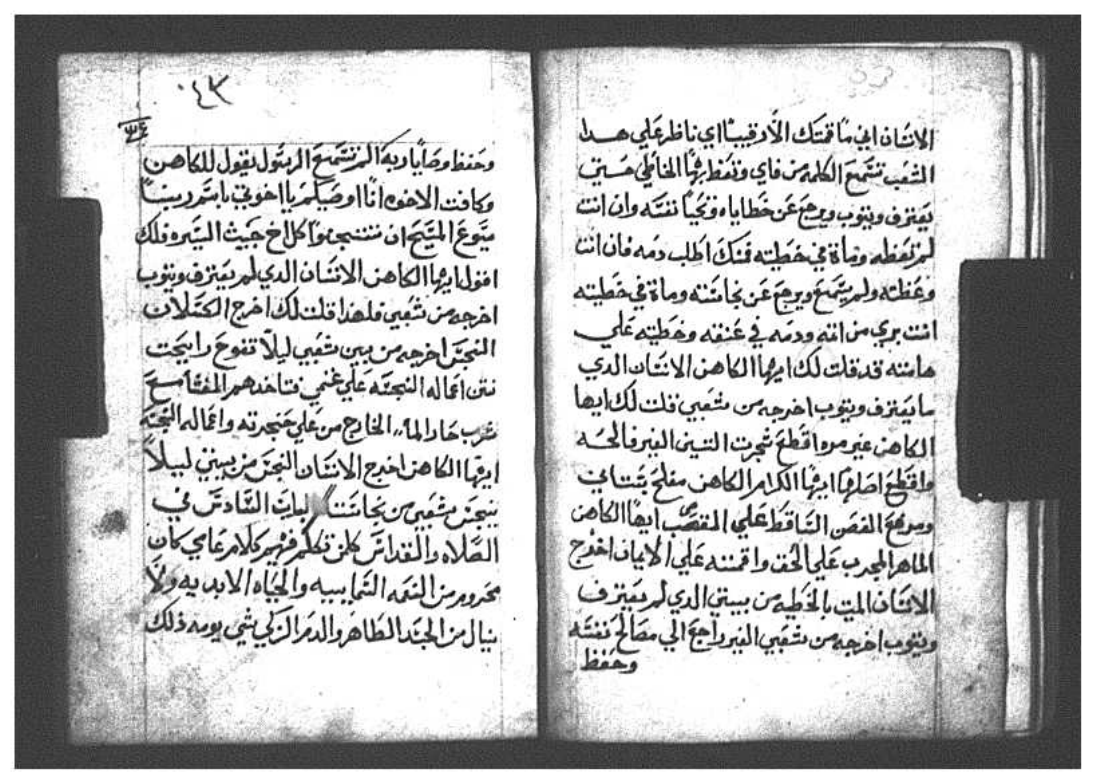 الانسان اني ما قمتك الا رقيبا اي ناظر علي هدا
الشعب تسمع الكلمه من فاي وتعظ بها الخاطي حتي
يعترف ويتوب ويرجع عن خطاياه وتحيا نفسه وان انت
لم تعظه وماة في خطيته فمنك اطلب دمه فان انت
وعظته ولم يسمع ويرجع عن نجاسته وماة في خطيته
انت بري من اثمه ودمه في عنقه وخطيته علي
هامته قد قلت لك ايها الكاهن الانسان الدي
ما يعترف ويتوب اخرجه من شعبي قلت لك ايها
الكاهن غير مره اقطع شجرت التين الغير فالحه
واقطع اصلها ايها الكرام الكاهن مفلح بستاني
الغصن الساقط علي ايها الكاهن
الماهر المجرب علي الحق واقمته علي الايمان اخرج
الانسان الميت بالخطيه من بيتي الدي لم يعترف
ويتوب اخرجه من شعبي الغير راجع الي مصالح نفسه
وحفظ
٤٣
وحفظ وصايا ربه الم تسمع الرسول يقول للكاهن
وكافت الاخوه انا اوصيكم يا اخوتي باسم ربنا
يسوع المسيح ان تتجنبوا كل اخ خبيث السيره فلك
اقول ايها الكاهن الانسان الدي لم يعترف ويتوب
اخرجه من شعبي فلهدا قلت لك اخرج الكسلان
النجس اخرجه من بين شعبي ليلا تفوح رايحت
نتن اعماله النجسه علي غنمي فتاخدهم
شرب حار الماء الخارج من علي حنجرته واعماله النجسه
ايها الكاهن اخرج الانسان النجس من بيتي ليلا
ينجس شعبي من نجاسته الباب السادس في
الصلاه والقداس كلمن تكلم فيهم كلام عامي كان
محروم من النعمه السماييه والحياه الابديه ولا
ينال من الجسد الطاهر والدم الزكي شي يومه ذلك